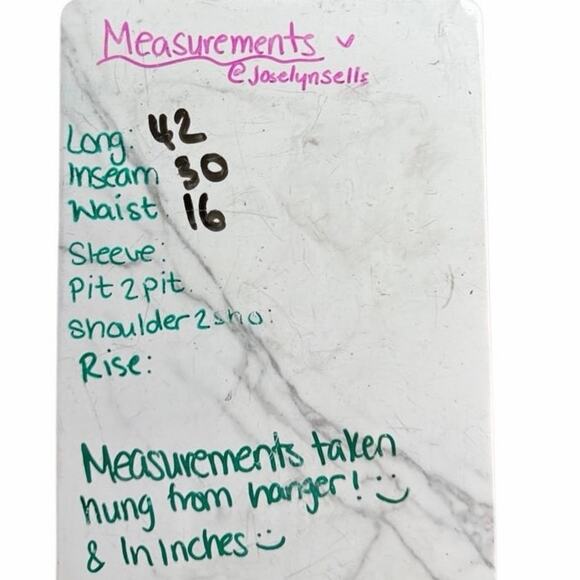 Measurements
@Joselynsells
Long: 42
Inseam 30
Waist 16
Sleeve:
Pit 2 pit
Shoulder 2 sho:
Rise:
Measurements taken
hung from hanger! :)
& In Inches :)